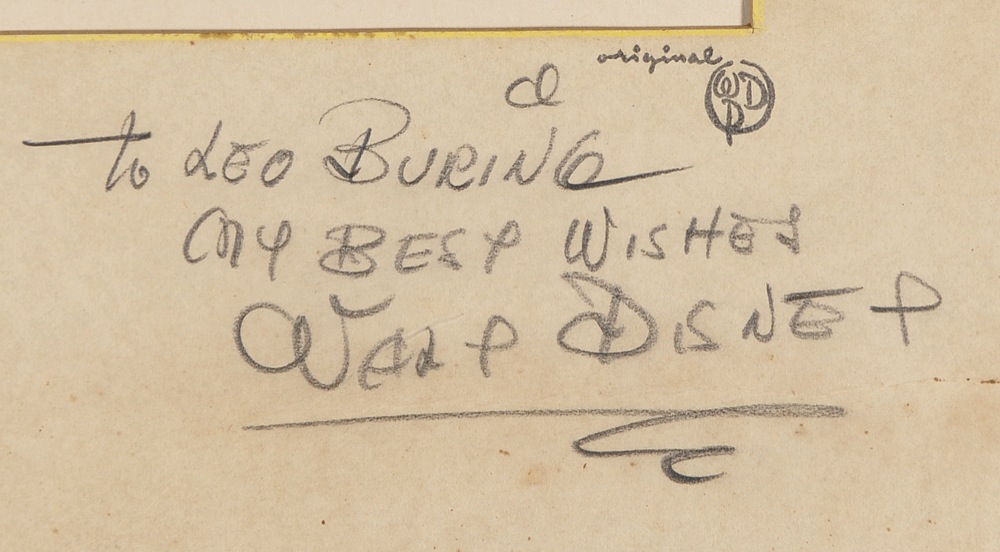 original
WDP
a
To LEO BURING
MY BEST WISHES
WALT DISNEY